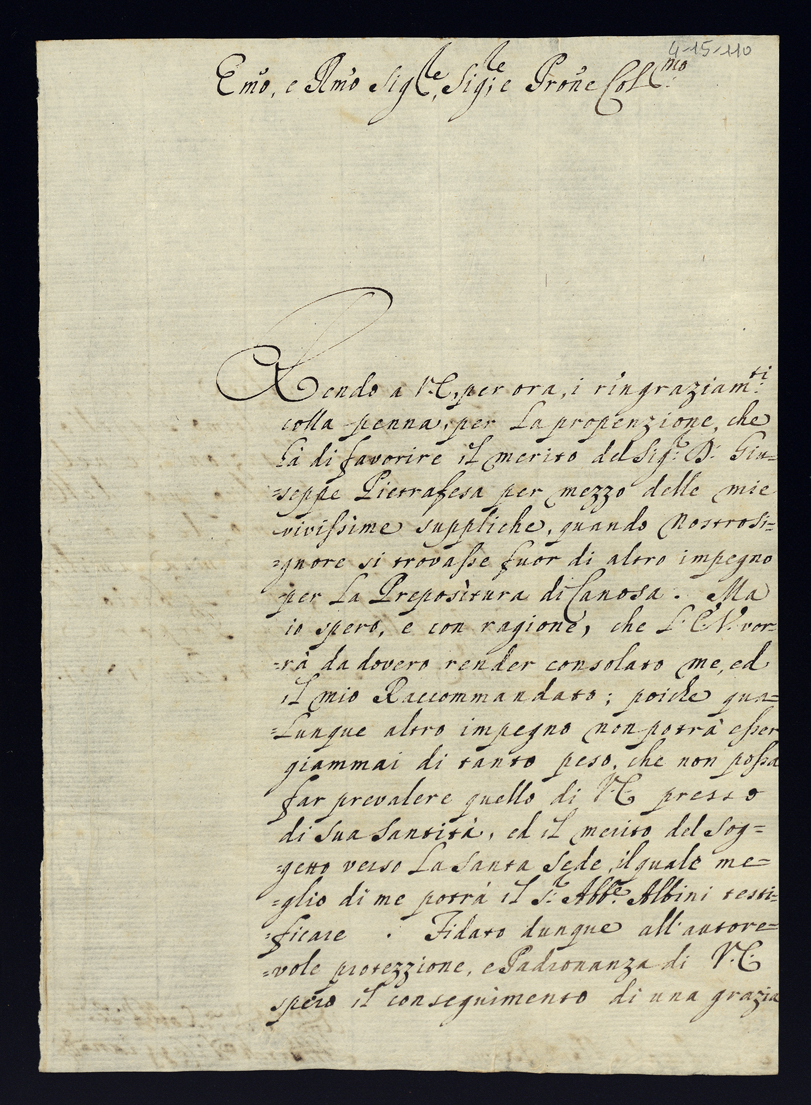 4-15-110
Emo, e Rmo Sigre, Sigre, e Prone Colmo
Rendo a V.E. per ora, i ringraziamti
colla penna, per la propenzione, che
hà di favorire il merito del Sigr. D. Giu=
=seppe Pietrafesa per mezzo delle mie
vivissime suppliche, quando Nostro Si=
=gnore si trovasse fuor di altro impegno
per la Prepositura di Canosa. Ma
io spero, e con ragione, che l'E.V. vor=
=rà da dovero render consolato me, ed
il mio Raccommandato; poiche qua=
=lunque altro impegno non potrà esser
giammai di tanto peso, che non possa
far prevalere quello di V.E. presso
di Sua Santità, ed il merito del Sog=
=getto verso la Santa Sede, il quale me=
=glio di me potrà il Sr. Abbe. Albini testi=
=ficare. Fidato dunque all'autore=
=vole protezzione, e Padronanza di V.E.
spero il conseguimento di una grazia